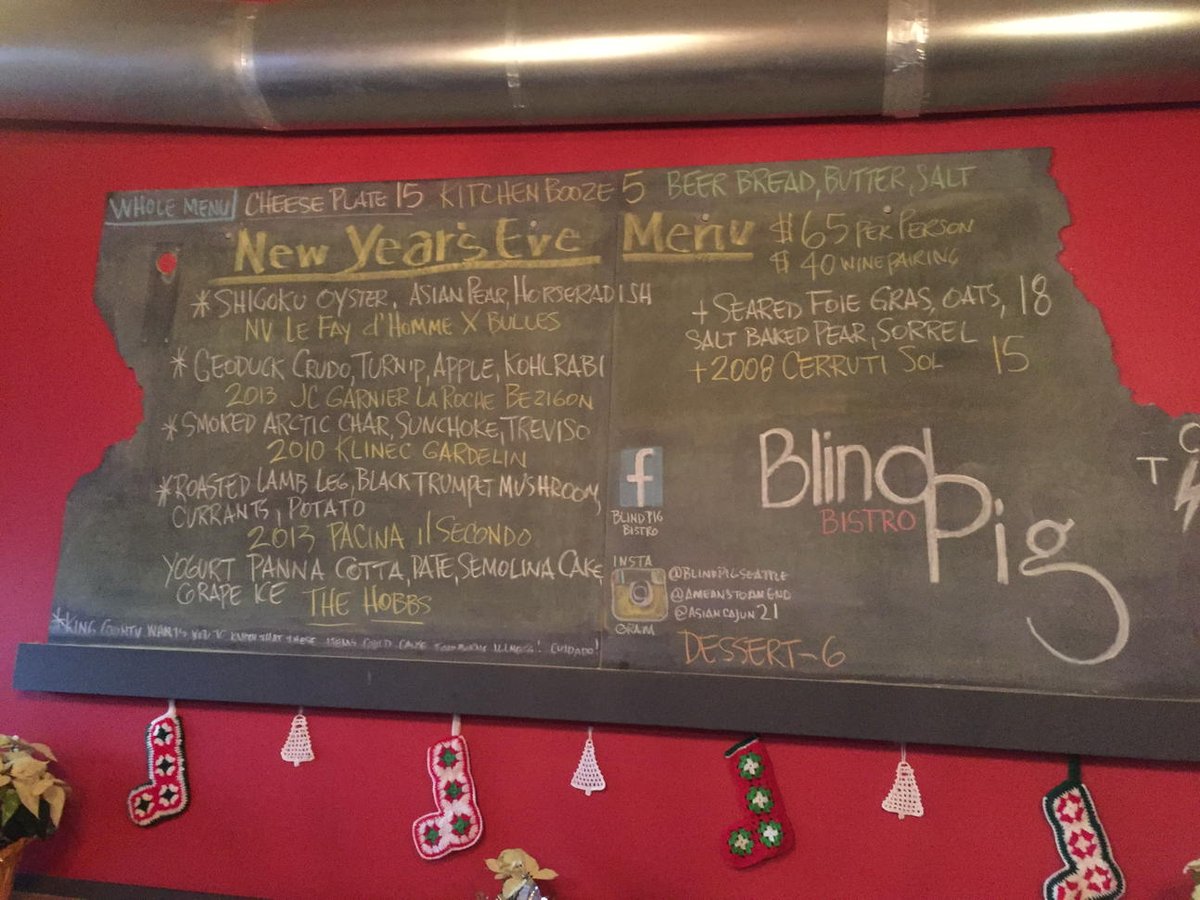 WHOLE MENU CHEESE PLATE 15 KITCHEN BOOZE 5 BEER BREAD, BUTTER, SALT
New Year's Eve Menu
$65 PER PERSON
$40 WINE PAIRING
* SHIGOKU OYSTER, ASIAN PEAR, HORSERADISH
NV LE FAY d'HOMME X BULLES
* GEODUCK CRUDO, TURNIP, APPLE, KOHLRABI
2013 JC GARNIER LA ROCHE BEZIGON
* SMOKED ARCTIC CHAR, SUNCHOKE, TREVISO
2010 KLINEC GARDELIN
* ROASTED LAMB LEG, BLACK TRUMPET MUSHROOM,
CURRANTS, POTATO
2013 PACINA il SECONDO
YOGURT PANNA COTTA, DATE, SEMOLINA CAKE,
GRAPE ICE THE HOBBS
* KING COUNTY WANTS YOU TO KNOW THAT THESE ITEMS COULD CAUSE FOODBORNE ILLNESS! CUIDADO!
+ SEARED FOIE GRAS, OATS, 18
SALT BAKED PEAR, SORREL
+ 2008 CERRUTI SOL 15
f
BLIND PIG
BISTRO
Blind Pig
BISTRO
INSTA
GRAM
@BLINDPIGSEATTLE
@AMEANSTOANEND
@ASIANCAJUN21
DESSERT-6
T